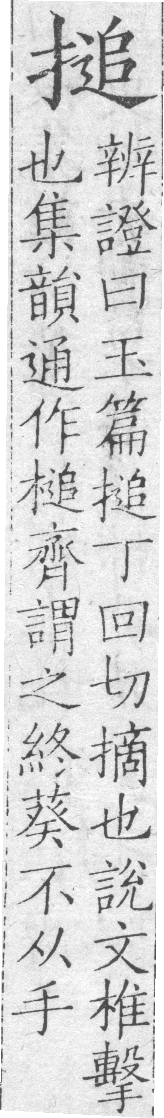 搥
辨證曰玉篇搥丁回切摘也說文椎擊
也集韻通作槌齊謂之終葵不从手